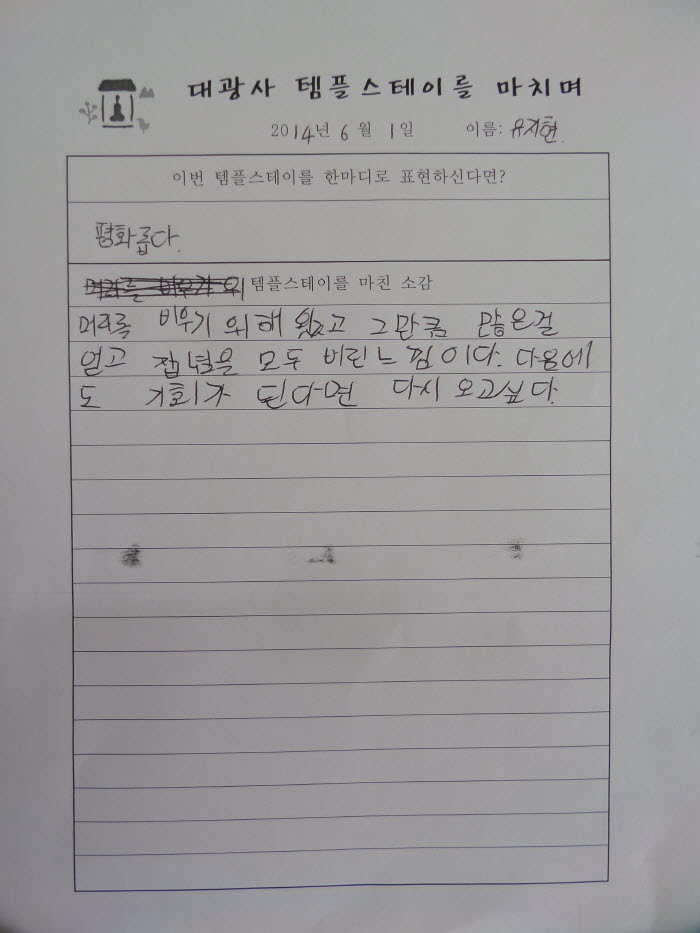 대광사 템플스테이를 마치며
2014년 6월 1일 이름: 유지현.
이번 템플스테이를 한마디로 표현하신다면?
평화롭다.
머리를 비우기 위 템플스테이를 마친 소감
머리를 비우기 위해 왔고 그만큼 많은걸
얻고 잡념을 모두 버린 느낌이다. 다음에
도 기회가 된다면 다시 오고싶다.